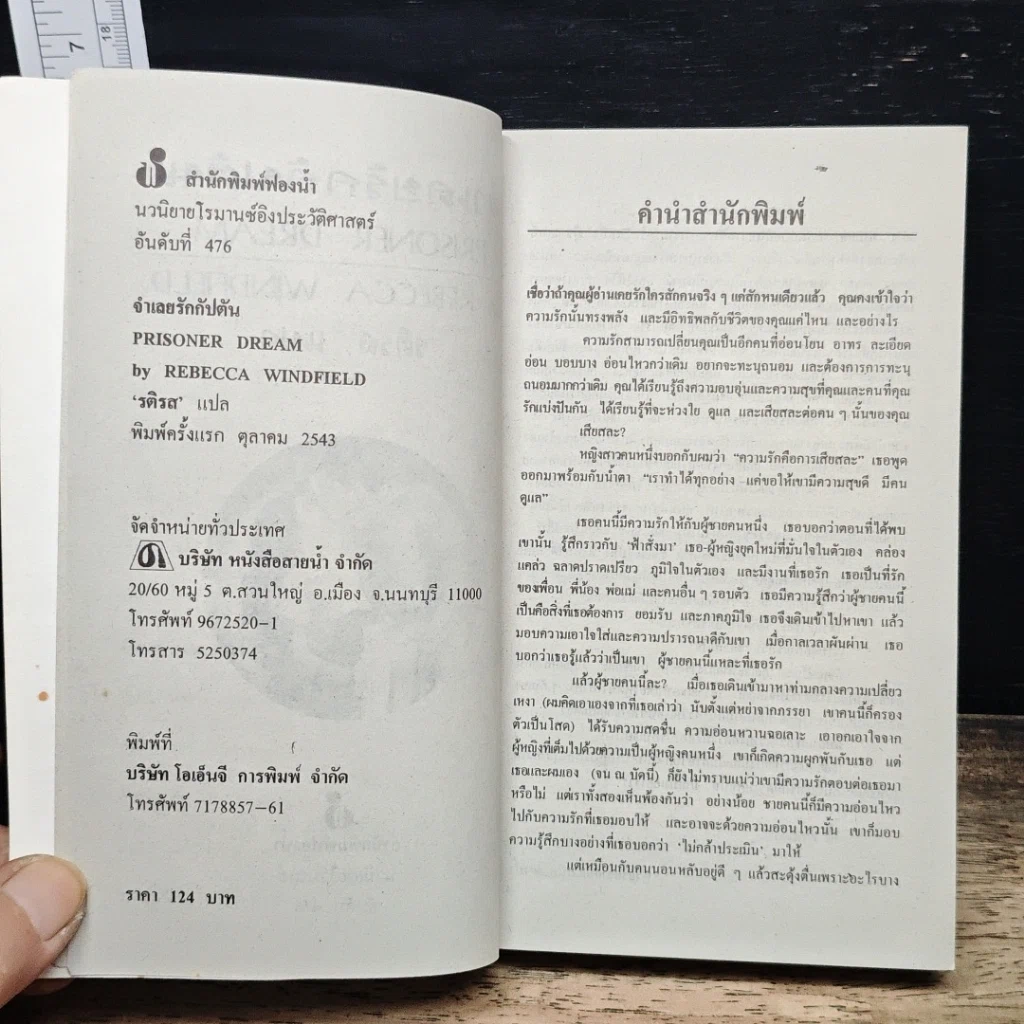 7
18
สำนักพิมพ์ฟองน้ำ
นวนิยายโรมานซ์อิงประวัติศาสตร์
อันดับที่ 476
จำเลยรักกัปตัน
PRISONER DREAM
by REBECCA WINDFIELD
'รติรส' แปล
พิมพ์ครั้งแรก ตุลาคม 2543
จัดจำหน่ายทั่วประเทศ
บริษัท หนังสือสายน้ำ จำกัด
20/60 หมู่ 5 ต.สวนใหญ่ อ.เมือง จ.นนทบุรี 11000
โทรศัพท์ 9672520-1
โทรสาร 5250374
พิมพ์ที่
บริษัท โอเอ็นจี การพิมพ์ จำกัด
โทรศัพท์ 7178857-61
ราคา 124 บาท
คำนำสำนักพิมพ์
เชื่อว่าถ้าคุณผู้อ่านเคยรักใครสักคนจริง ๆ แค่สักหนเดียวแล้ว คุณคงเข้าใจว่า
ความรักนั้นทรงพลัง และมีอิทธิพลกับชีวิตของคุณแค่ไหน และอย่างไร
ความรักสามารถเปลี่ยนคุณเป็นอีกคนที่อ่อนโยน อาทร ละเอียด
อ่อน บอบบาง อ่อนไหวกว่าเดิม อยากจะทะนุถนอม และต้องการการทะนุ
ถนอมมากกว่าเดิม คุณได้เรียนรู้ถึงความอบอุ่นและความสุขที่คุณและคนที่คุณ
รักแบ่งปันกัน ได้เรียนรู้ที่จะห่วงใย ดูแล และเสียสละต่อคน ๆ นั้นของคุณ
เสียสละ?
หญิงสาวคนหนึ่งบอกกับผมว่า "ความรักคือการเสียสละ" เธอพูด
ออกมาพร้อมกับน้ำตา "เราทำได้ทุกอย่าง แค่ขอให้เขามีความสุขดี มีคน
ดูแล"
เธอคนนี้มีความรักให้กับผู้ชายคนหนึ่ง เธอบอกว่าตอนที่ได้พบ
เขานั้น รู้สึกราวกับ 'ฟ้าสั่งมา' เธอ-ผู้หญิงยุคใหม่ที่มั่นใจในตัวเอง คล่อง
แคล่ว ฉลาดปราดเปรียว ภูมิใจในตัวเอง และมีงานที่เธอรัก เธอเป็นที่รัก
ของเพื่อน พี่น้อง พ่อแม่ และคนอื่น ๆ รอบตัว เธอมีความรู้สึกว่าผู้ชายคนนี้
เป็นคือสิ่งที่เธอต้องการ ยอมรับ และภาคภูมิใจ เธอจึงเดินเข้าไปหาเขา แล้ว
มอบความเอาใจใส่และความปรารถนาดีกับเขา เมื่อกาลเวลาผันผ่าน เธอ
บอกว่าเธอรู้แล้วว่าเป็นเขา ผู้ชายคนนี้แหละที่เธอรัก
แล้วผู้ชายคนนี้ละ? เมื่อเธอเดินเข้ามาหาท่ามกลางความเปลี่ยว
เหงา (ผมคิดเอาเองจากที่เธอเล่าว่า นับตั้งแต่หย่าจากภรรยา เขาคนนี้ก็ครอง
ตัวเป็นโสด) ได้รับความสดชื่น ความอ่อนหวานฉอเลาะ เอาอกเอาใจจาก
ผู้หญิงที่เต็มไปด้วยความเป็นผู้หญิงคนหนึ่ง เขาก็เกิดความผูกพันกับเธอ แต่
เธอและผมเอง (จน ณ บัดนี้) ก็ยังไม่ทราบแน่ว่าเขามีความรักตอบต่อเธอมา
หรือไม่ แต่เราทั้งสองเห็นพ้องกันว่า อย่างน้อย ชายคนนี้ก็มีความอ่อนไหว
ไปกับความรักที่เธอมอบให้ และอาจจะด้วยความอ่อนไหวนั้น เขาก็มอบ
ความรู้สึกบางอย่างที่เธอบอกว่า 'ไม่กล้าประเมิน' มาให้
แต่เหมือนกับคนนอนหลับอยู่ดี ๆ แล้วสะดุ้งตื่นเพราะอะไรบาง